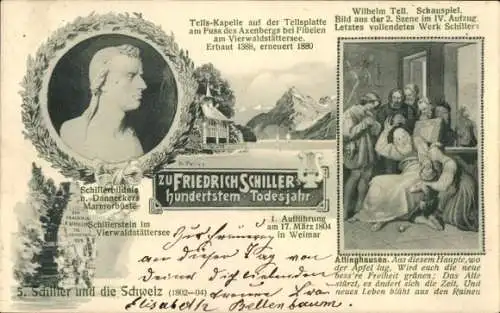 Tells-Kapelle auf der Tellsplatte
am Fuss des Axenbergs bei Flüelen
am Vierwaldstättersee.
Erbaut 1388, erneuert 1880
Wilhelm Tell. Schauspiel.
Bild aus der 2. Szene im IV. Aufzug.
Letztes vollendetes Werk Schillers
Schillerbildnis
n. Danneckers
Marmorbüste
Schillerstein im
Vierwaldstättersee
ZU FRIEDRICH SCHILLER'S
hundertstem Todesjahr
1. Aufführung
am 17. März 1804
in Weimar
an diesem Tag von
Elisabeth
Attinghausen. Aus diesem Haupte, wo
der Apfel lag, Wird euch die neue
bess're Freiheit grünen; Das Alte
stürzt, es ändert sich die Zeit, Und
neues Leben blüht aus den Ruinen.
5. Schiller und die Schweiz (1802-04)